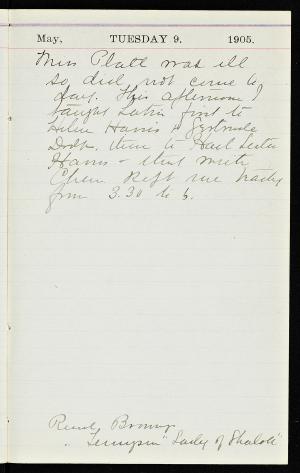 May, TUESDAY 9. 1905.
Miss Platt was ill
so did not come to
day. This afternoon I
taught Latin first to
Helen Harris & Gertrude
then to
Harris - that with
Chem kept me busy
from 3.30 to 6.
Read
" Tennyson "Lady of Shalott"